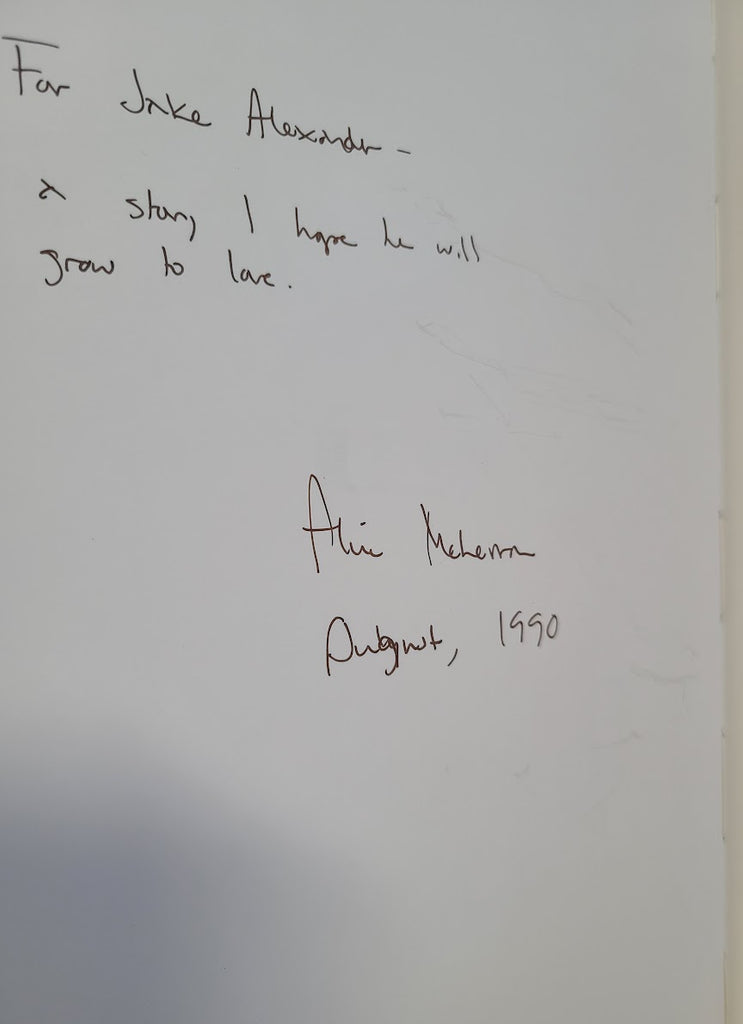 For Jake Alexander -
a story I hope he will
grow to love.
Alice McLerran
August, 1990